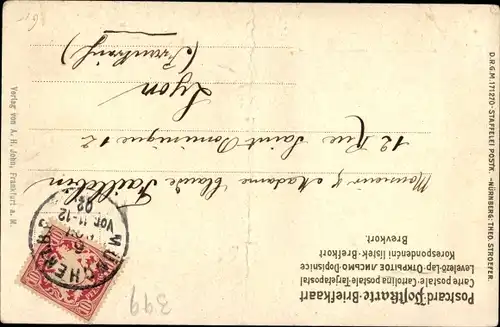 Postcard-Postkarte-Briefkaart
Carte postale-Cartolina postale-Tarjetapostal
Levelező-Lap-ОТКРЫТОЕ ПИСЬМО-Dopisnice
Korespondenční lístek-Brefkort
Brevkort.
Monsieur & Madame Claude
12 Rue Saint Dominique 12
Lyon
(Frankreich)
D.R.G.M. 171270-STAFFELEI POSTK. -NÜRNBERG-THEO STROEFER.
Verlag von A. H. John, Frankfurt a. M.
MÜNCHEN
VOR. 11-12
02
10
399